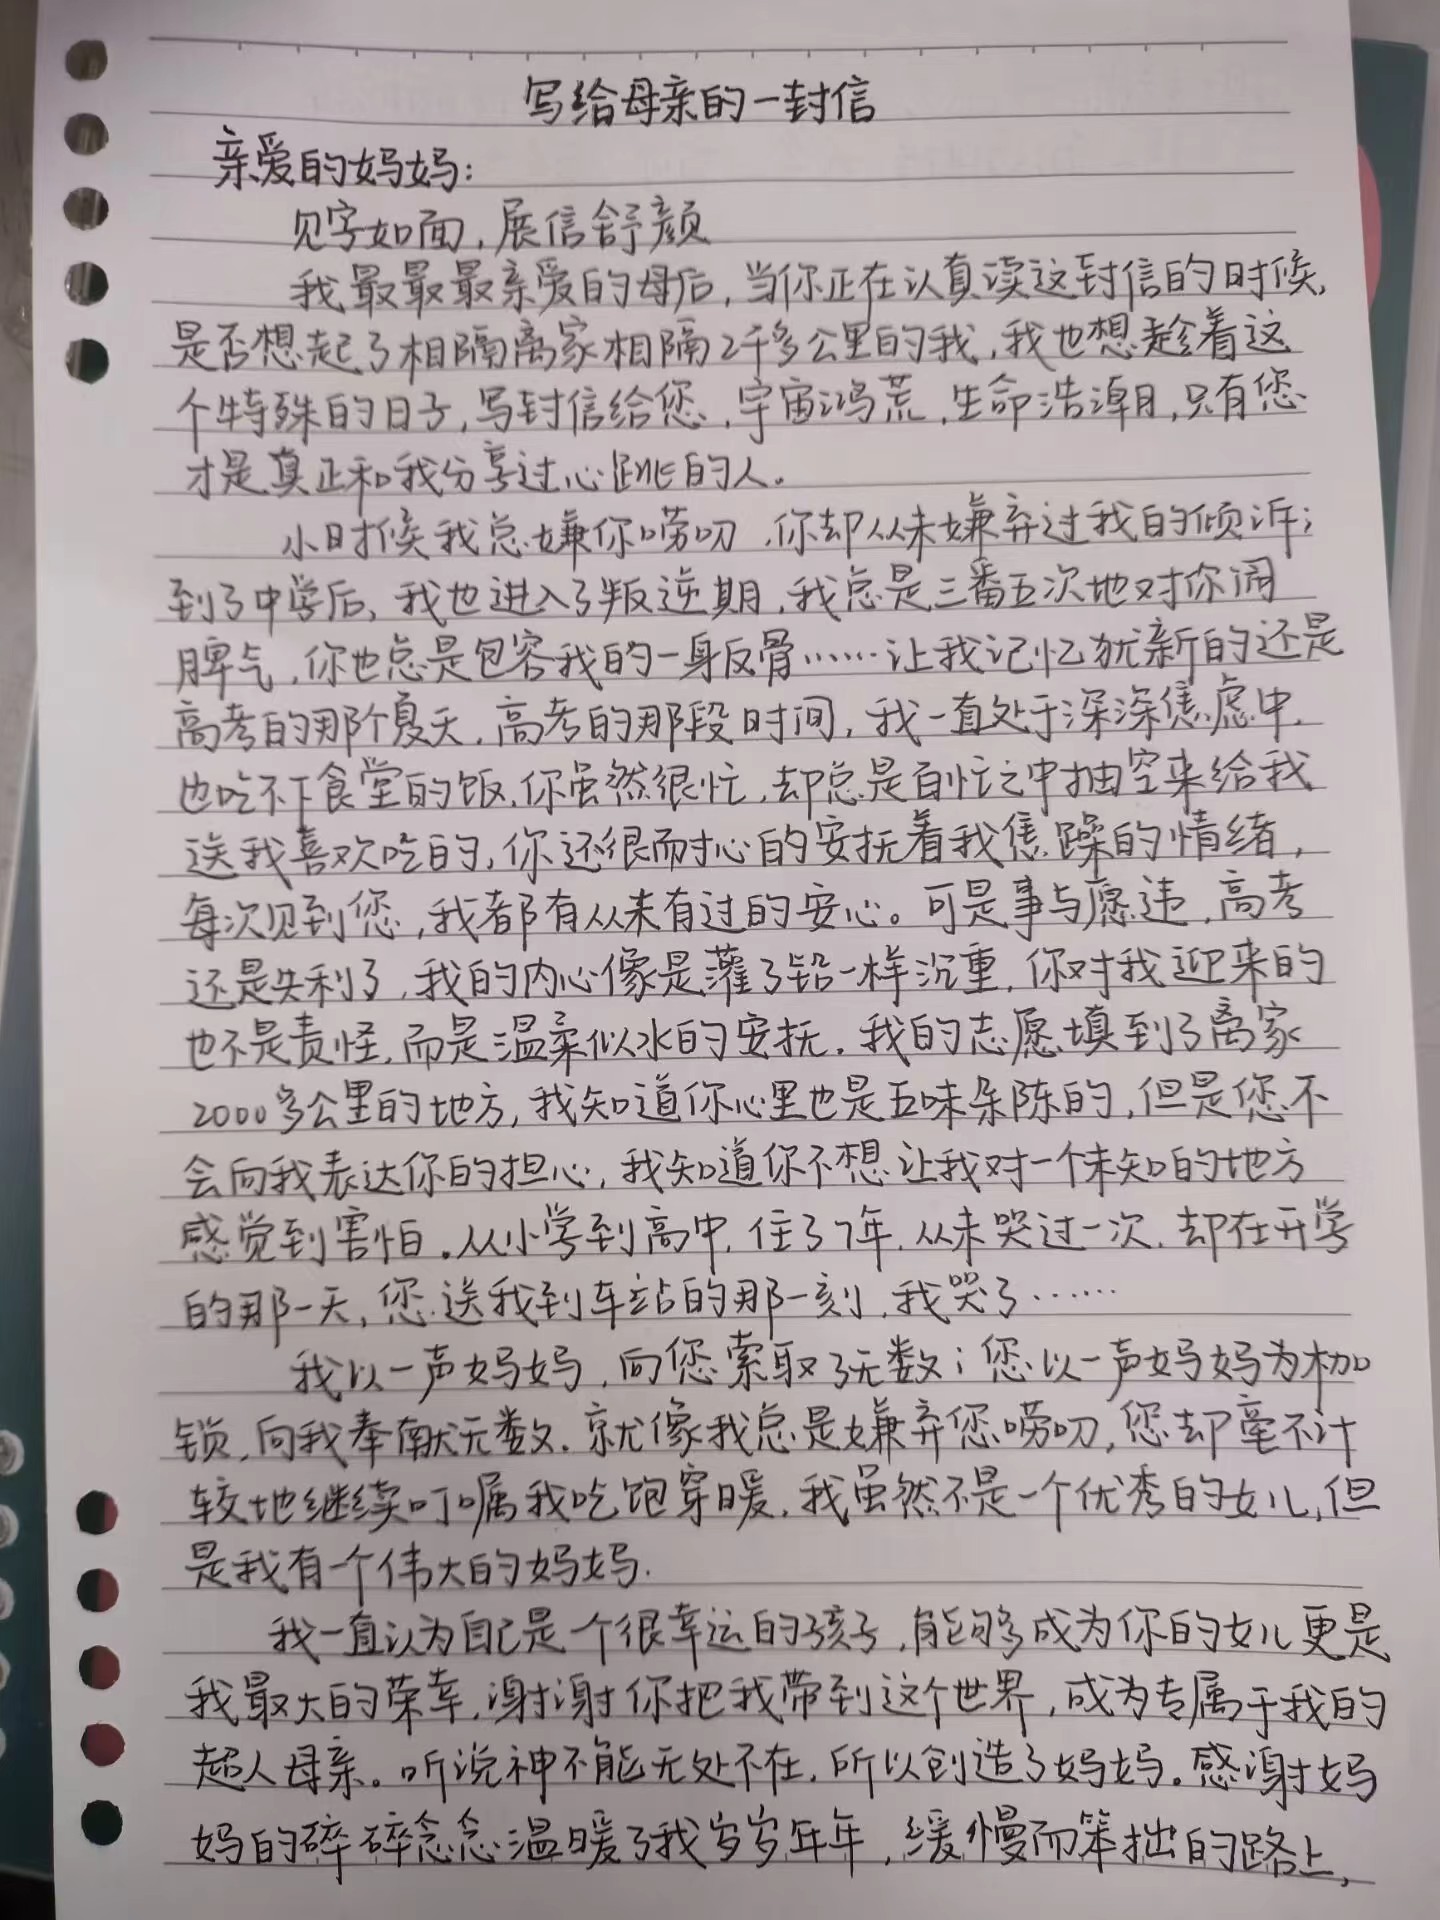 写给母亲的一封信
亲爱的妈妈:
见字如面,展信舒颜
我最最最亲爱的母后,当你正在认真读这封信的时候,
是否想起了相隔离家相隔2千多公里的我,我也想趁着这
个特殊的日子,写封信给您,宇宙鸿荒,生命浩淖,只有您
才是真正和我分享过心跳的人。
小时候我总嫌你唠叨,你却从未嫌弃过我的倾诉;
到了中学后,我也进入了叛逆期,我总是三番五次地对你闹
脾气,你也总是包容我的一身反骨……让我记忆犹新的还是
高考的那个夏天,高考的那段时间,我一直处于深深焦虑中,
也吃不下食堂的饭,你虽然很忙,却总是百忙之中抽空来给我
送我喜欢吃的,你还很耐心的安抚着我焦躁的情绪,
每次见到您,我都有从未有过的安心。可是事与愿违,高考
还是失利了,我的内心像是灌了铅一样沉重,你对我迎来的
也不是责怪,而是温柔似水的安抚.我的志愿填到了离家
2000多公里的地方,我知道你心里也是五味杂陈的,但是您不
会向我表达你的担心,我知道你不想让我对一个未知的地方
感觉到害怕。从小学到高中,住了7年,从未哭过一次,却在开学
的那一天,您送我到车站的那一刻,我哭了……
我以一声妈妈,向您索取了无数;您以一声妈妈为枷
锁,向我奉献无数.就像我总是嫌弃您唠叨,您却毫不计
较地继续叮嘱我吃饱穿暖.我虽然不是一个优秀的女儿,但
是我有一个伟大的妈妈.
我一直认为自己是一个很幸运的孩子,能够成为你的女儿更是
我最大的荣幸,谢谢你把我带到这个世界,成为专属于我的
超人母亲。听说神不能无处不在,所以创造了妈妈。感谢妈
妈的碎碎念念温暖了我岁岁年年,缓慢而笨拙的路上,